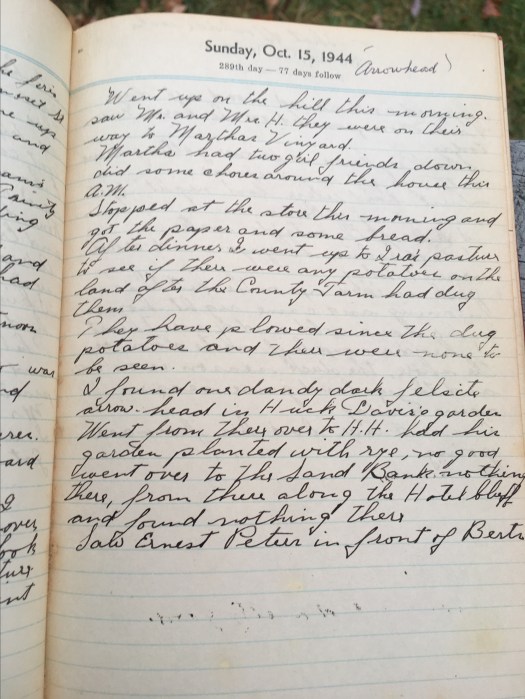 Sunday, Oct. 15, 1944
289th day — 77 days follow
(Arrowhead)
Went up on the hill this morning.
saw Mr. and Mrs H. they were on their
way to Marthas Vinyard.
Martha had two girl friends down
did some chores around the house this
A.M.
Stopped at the store this morning and
got the paper and some bread.
After dinner I went up to Ira's pasture
to see if there were any potatoes on the
land after the County Farm had dug
them
They have plowed since the dug
potatoes and there were none to
be seen.
I found one dandy dark felsite
arrow-head in Huck Davis's garden
Went from there over to H.H. had his
garden planted with rye, no good
went over to the Sand Bank nothing
there, from there along the Hotel bluff
and found nothing there
Saw Ernest Peter in front of